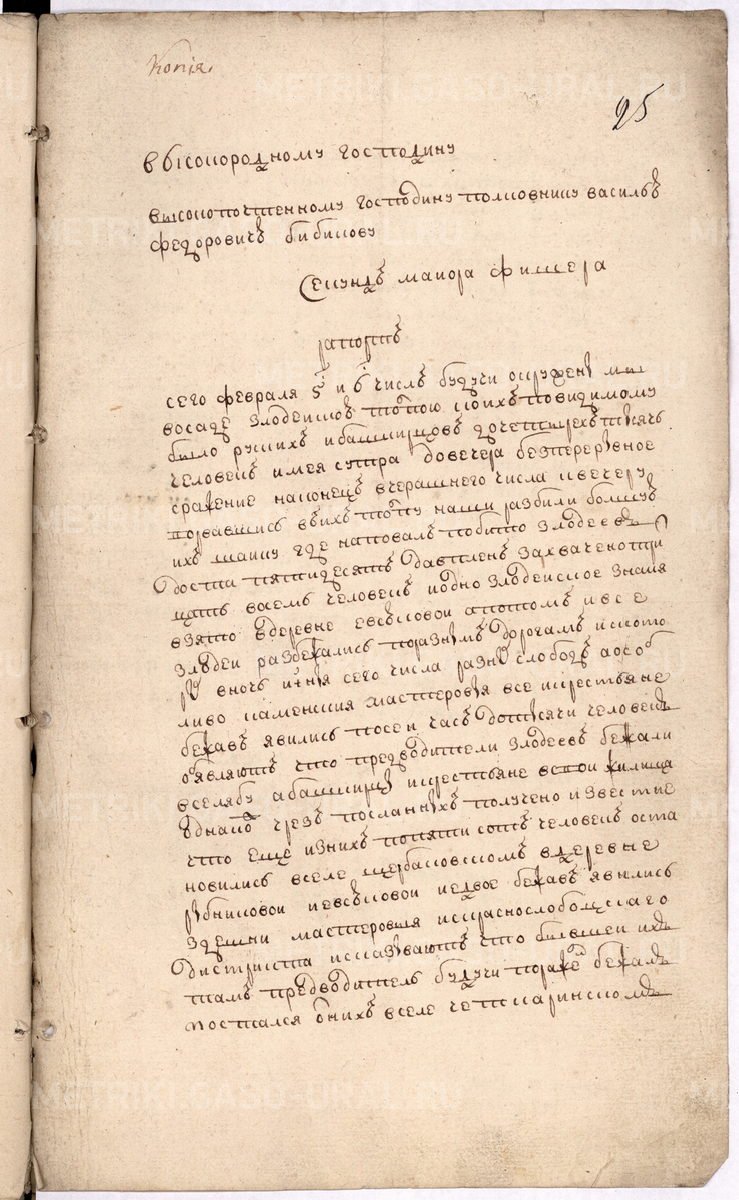 Копія
25
высокородному господину
высокопочтенному господину полковнику василью
федоровичю бибикову
Секундъ маиора фишера
рапортъ
сего февраля 5 и 6 числъ будучи окруженъ
восаде злодейскою толпою коихъ повидимому
было руских ибашкирцовъ дочетырехъ тысячь
человекъ имея сутра довечера безпереривное
сражение наконецъ вчерашнего числа квечеру
ворвавшись вьихъ толпу наши разбили большую
ихъ шайку где наповалъ побито злодеевъ
доста пятидесятъ давпленъ захвачено три
цать восемь человекъ иодно злодейское знамя
взято вдеревне евсиковой апотомъ ивсе
злодеи разбежались поразнымъ дорогамъ иското
рых вночь иныя сего числа разныхъ слободъ аособ
ливо каменския мастеровыя все икрестьяне
бежавъ явились посей часъ дотысячи человекъ
объявляютъ что предводители злодеевъ бежали
вселябу абашкирцы икрестьяне всвои жилища
однако чрезъ посланныхъ получено известие
что еще изнихъ попяти сотъ человекъ оста
новились вселе щербаковскомъ вдеревне
рыбниковой иевсиковой идвое бежавъ явились
здешни мастеровыя искраснослободцкаго
дистрикта исказываютъ что бывшей ихъ
тамъ предводитель будучи пораженъ бежалъ
иостался онихъ вселе четкаринскомъ